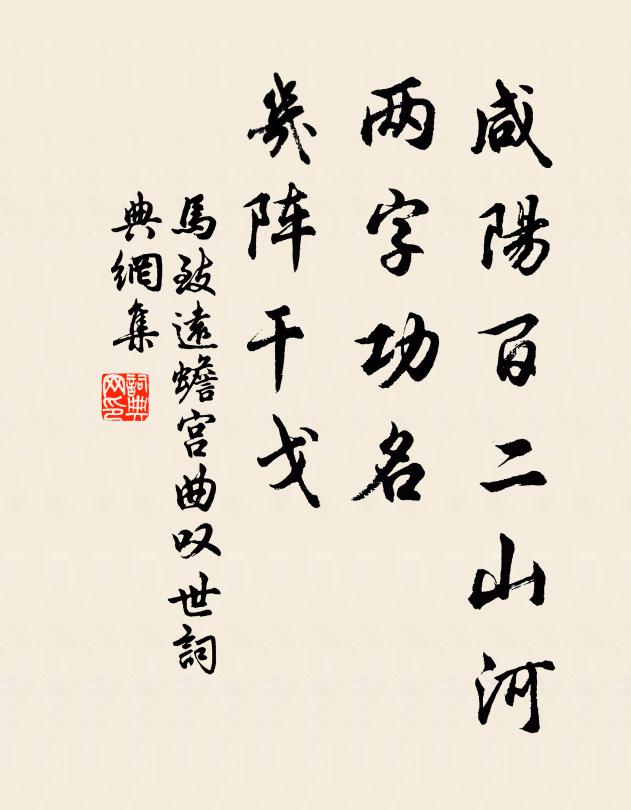 咸陽百二山河
两字功名
幾阵干戈
馬致遠蟾宫曲叹世詞
典網集
詞典网印